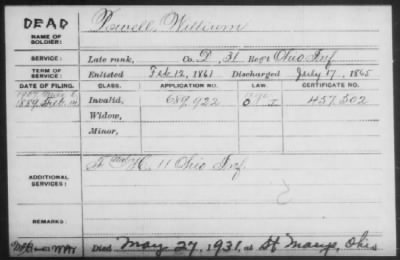 DEAD
NAME OF SOLDIER: Powell, William
SERVICE: Late rank, Co. D, 31 Reg't Ohio Inf.
TERM OF SERVICE: Enlisted Feb. 12, 1861 Discharged July 17, 1865
DATE OF FILING. CLASS. APPLICATION NO. LAW. CERTIFICATE NO.
1889 Invalid, 689,922 457,502
Widow,
Minor,
H. 11 Ohio Inf.
ADDITIONAL SERVICES:
REMARKS:
Died May 27, 1931, at St Marys, Ohio